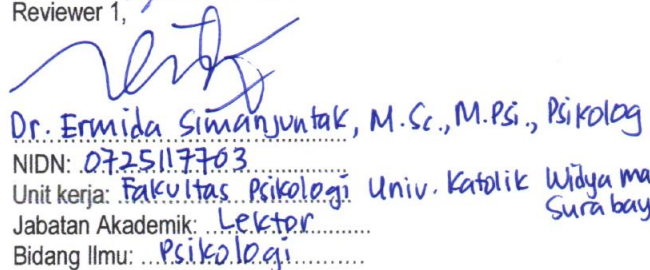 Reviewer 1,
Dr. Ermida Simanjuntak, M.Sc., M.Psi., Psikolog
NIDN: 0725117703
Unit kerja: Fakultas Psikologi Univ. Katolik Widya
Surabay
Jabatan Akademik: Lektor
Bidang Ilmu: Psikologi